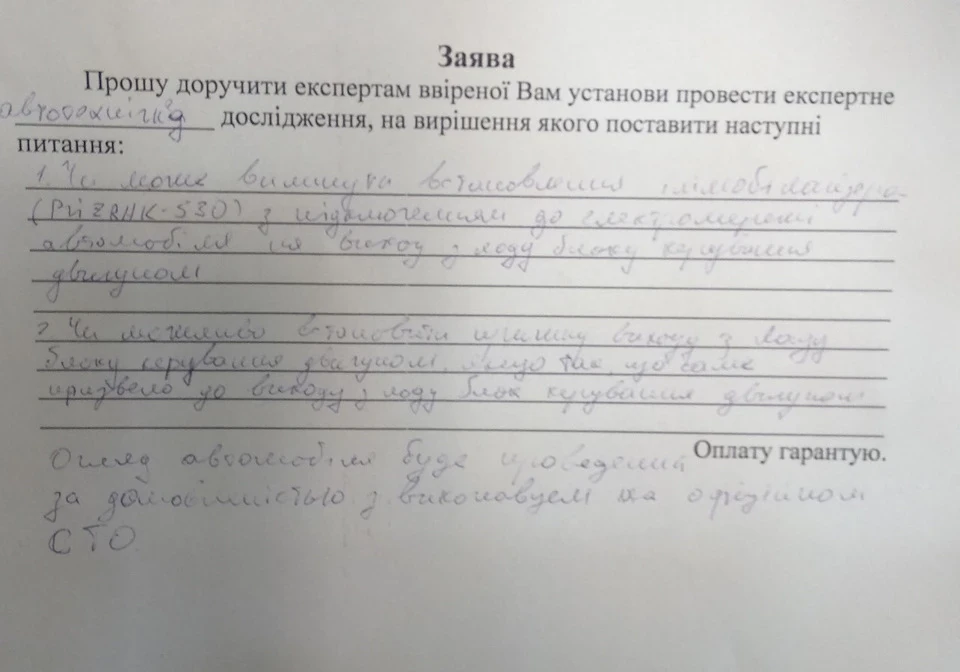 Заява
Прошу доручити експертам ввіреної Вам установи провести експертне
автотехнічне дослідження, на вирішення якого поставити наступні
питання:
1. Чи може вилинути встановлення імобілайзера
(PRIZRAK-530) з підключенням до електромережі
автомобіля на виход з ладу блоку керування
двигуном
2. Чи можливо встановити причину виходу з ладу
блоку керування двигуном, якщо так, що саме
призвело до виходу з ладу блок керування двигуном
Оплату гарантую.
Огляд автомобіля буде проведений
за домовленістью з виконавцем на офіційном
СТО.